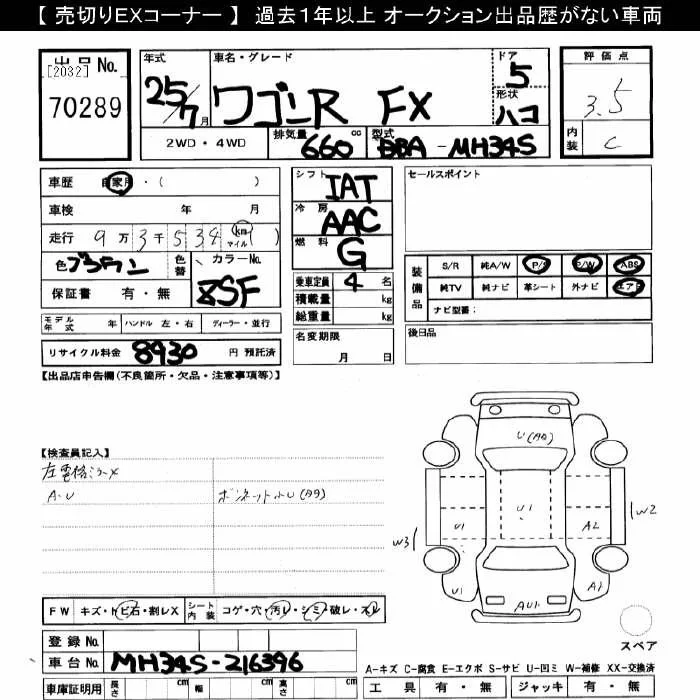 【 売切りEXコーナー 】 過去1年以上 オークション出品歴がない車両
出品 No.
[2032]
70289
年式
25/7月
車名・グレード
ワゴンR FX
ドア
5
形状
ハコ
評価点
3.5
内装
C
2WD・4WD
排気量
660 cc
型式
DBA-MH34S
車歴 自家用・( )
車検 年 月
走行 9万3千534 km マイル ( )
色 ブラウン
色替
カラーNo.
Z8F
保証書 有・無
シフト
IAT
冷房
AAC
燃料
G
乗車定員 4 名
積載量 kg
総重量 kg
セールスポイント
装備品
S/R 純A/W P/S P/W ABS
純TV 純ナビ 革シート 外ナビ エアB
ナビ型番:
モデル年式 年 ハンドル 左・右 ディーラー・並行
名変期限
月 日
後日品
リサイクル料金 8930 円 預託済
【出品店申告欄(不良箇所・欠品・注意事項等)】
【検査員記入】
左電格ミラーX
A・U
ボンネット小U(A9)
U(A9)
U1
U1
A2
W2
W3
U1
A1
AU1
スペア
FW キズ・トビ石・割レX
シート内装 コゲ・穴・汚レ・シミ・破レ・スレ
登録No.
車台No. MH34S-216396
車庫証明用 長さ cm 幅 cm 高さ cm
A-キズ C-腐食 E-エクボ S-サビ U-凹ミ W-補修 XX-交換済
工具 有・無 ジャッキ 有・無